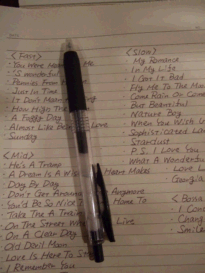 <Fast>
You Were Mean
'S wonderful
Pennies From
Just In Time
It Don't Mean
How High The
A Foggy Day
Almost Like Being Love
Sunday
<Mid>
He's A Tramp
A Dream Is A Wish Heart Makes
Day By Day
Don't Get Around Anymore
You'd Be So Nice Home To
Take The A
On The Street Live
On A Clear Day
Old Devil Moon
Love Is Here To
I Remember You
<Slow>
My Romance
In My Life
I Got It Bad
Fly Me To The
Come Rain Or Come
But Beautiful
Nature Boy
When You Wish
Sophisticated
Stardust
P.S. I Love You
What A Wonderful
Love
Georgia
<Bossa
Smile